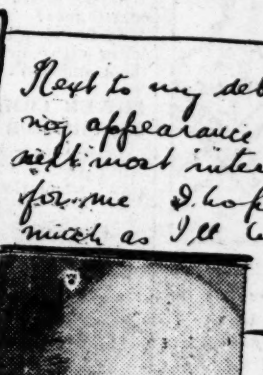 Next to my deb
my appearance
next most inter
for me I hop
much as I'll